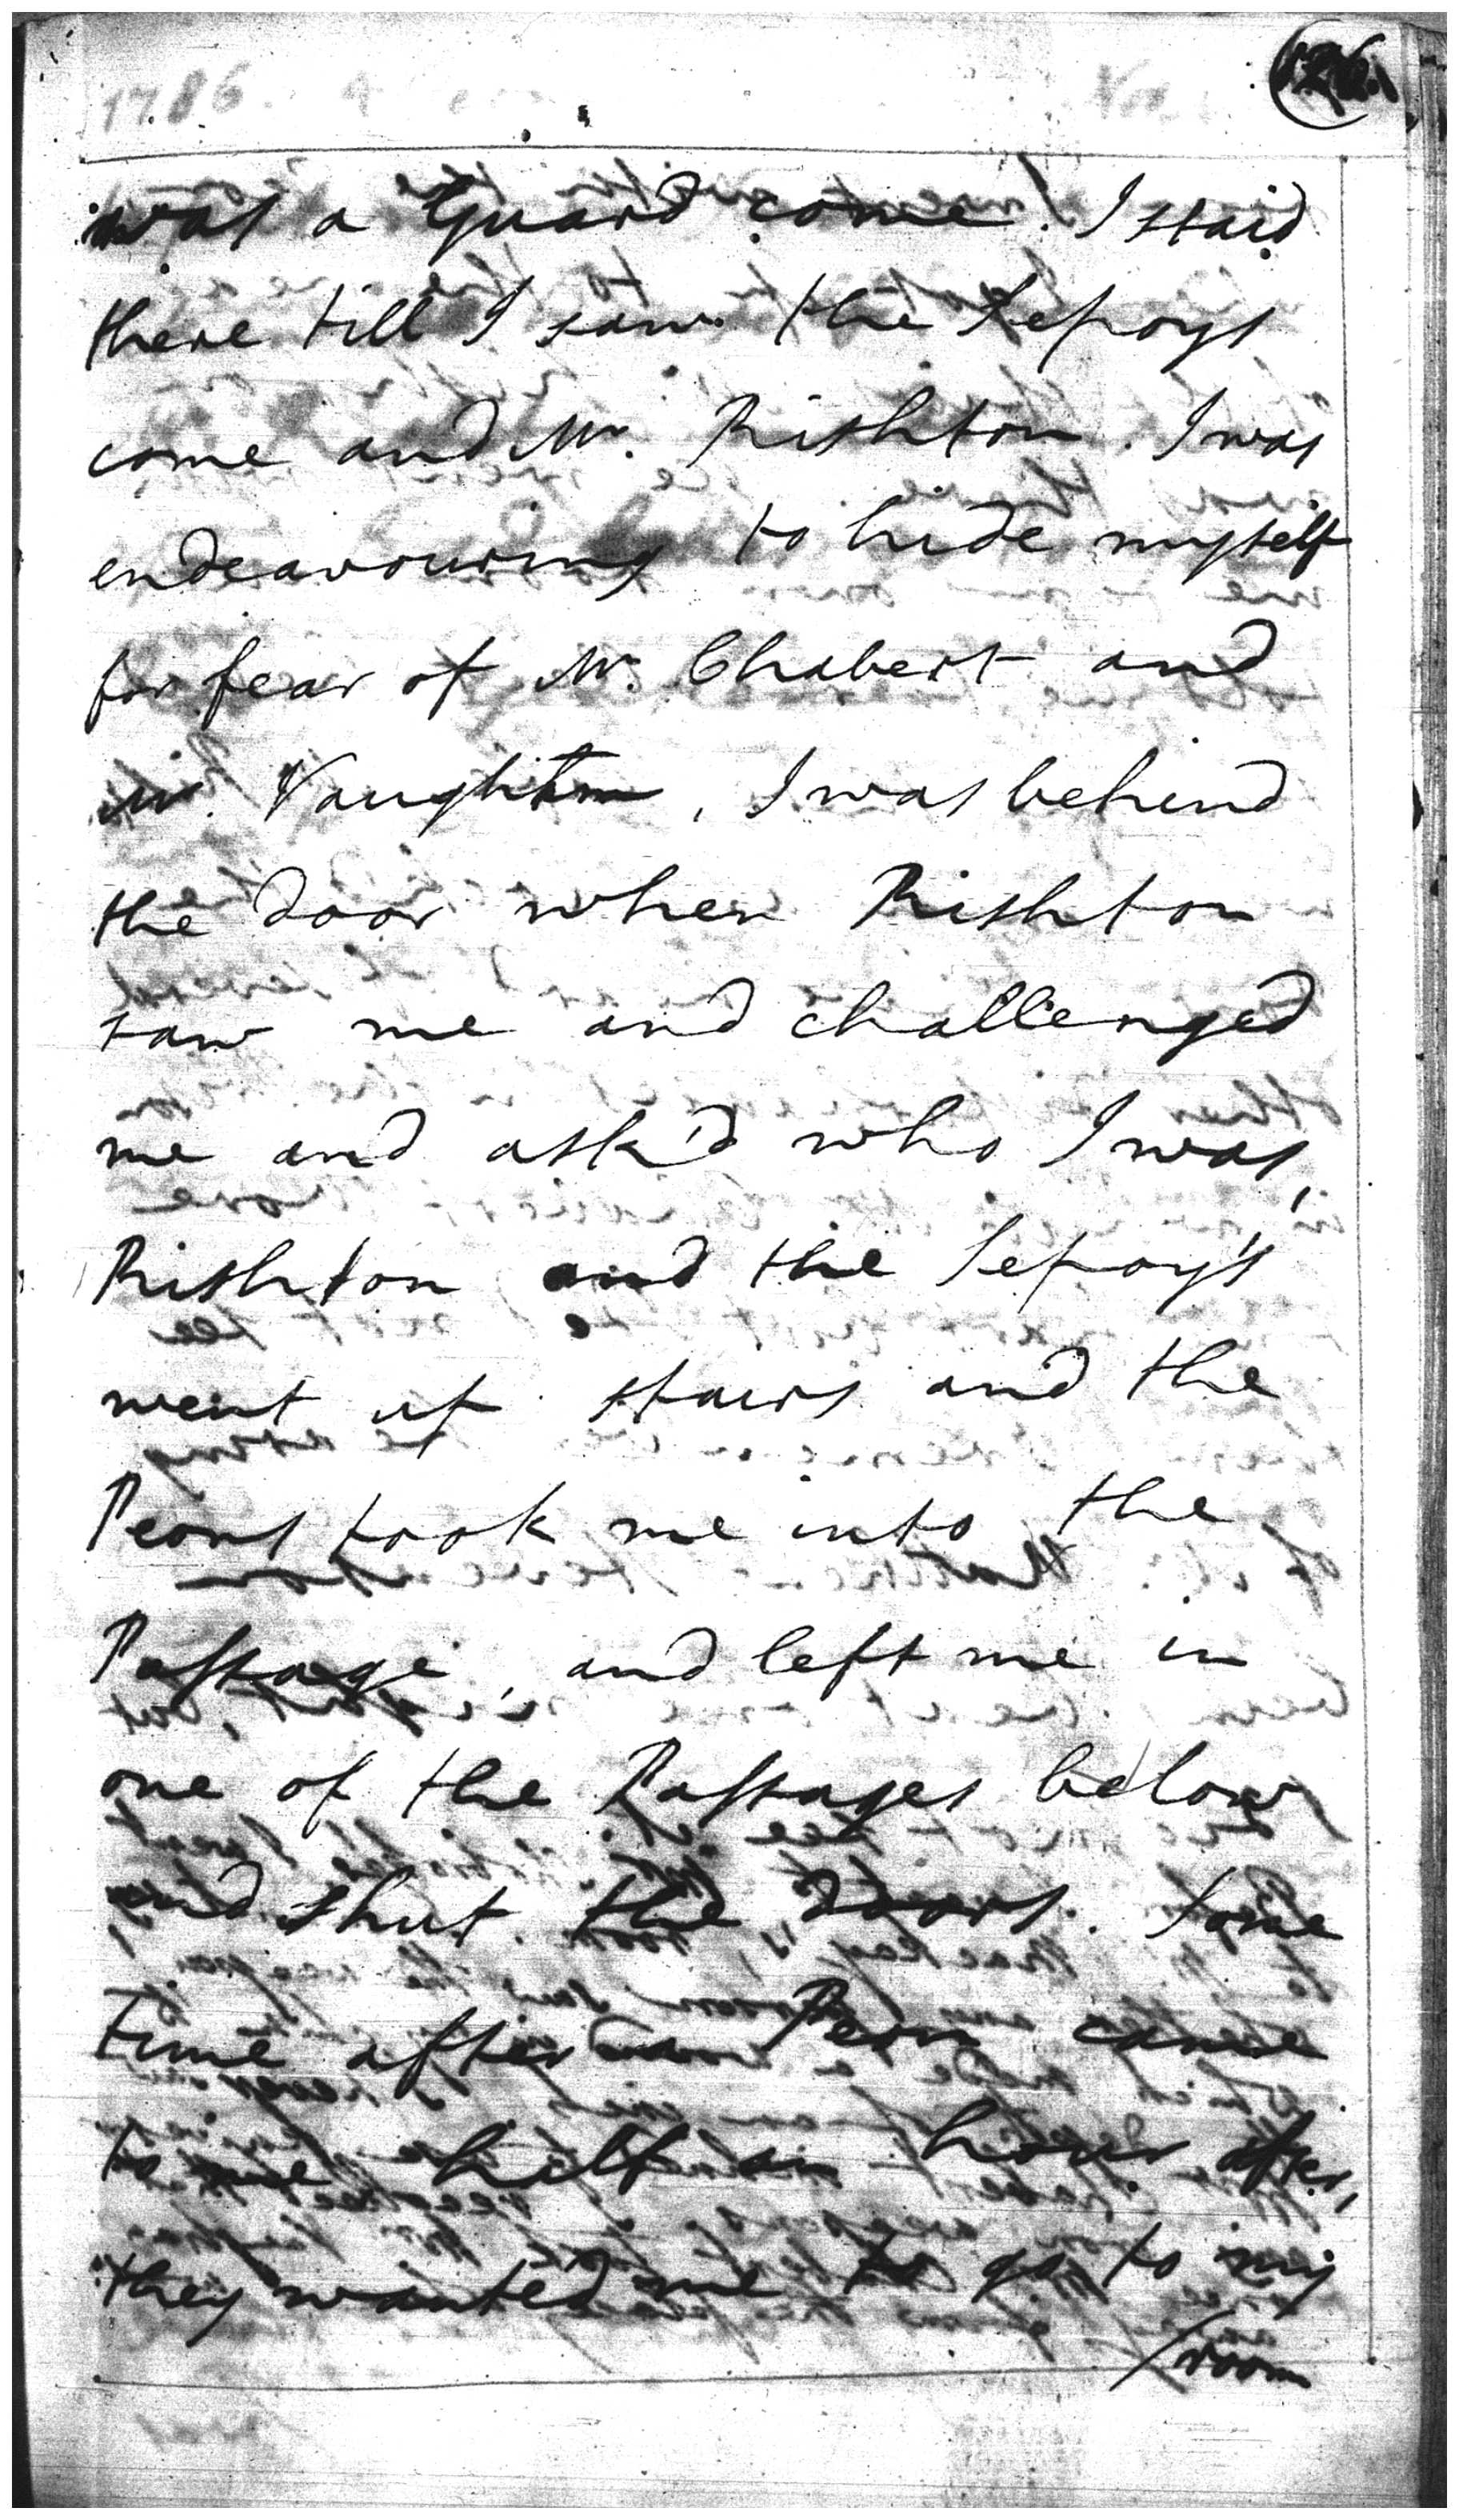 1786.
126.
was a Guard come. I staid
there till I saw the Sepoys
come and Mr. Rishton. I was
endeavouring to hide myself
for fear of Mr. Chabert and
Mr. Vaughton, I was behind
the door when Rishton
saw me and challenged
me and ask'd who I was,
Rishton and the Sepoy's
went up stairs and the
Peons took me into the
Passage, and left me in
one of the Passages below
and shut the doors. Some
time after a Peon came
to me half an hour after,
they wanted me to go to my
/room